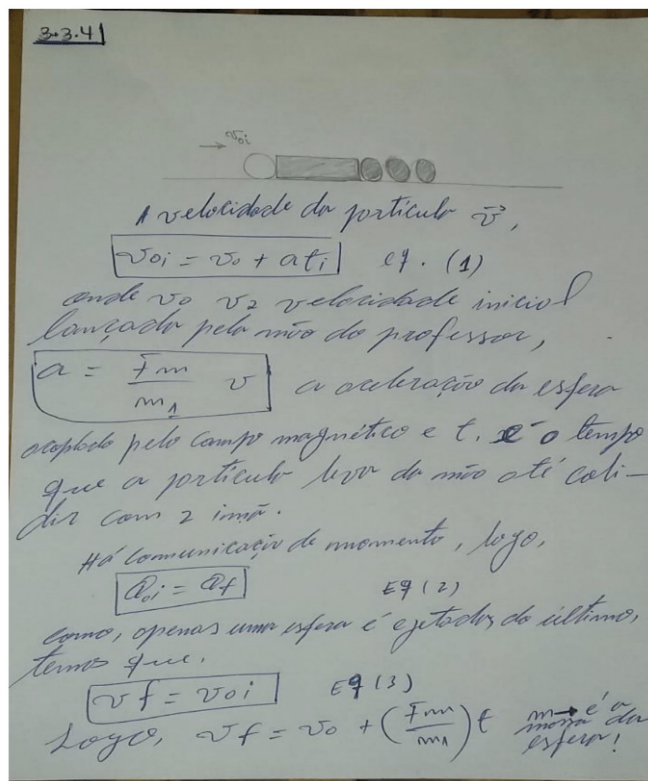 3.3.4
v₀i
A velocidade da partícula v⃗,
v₀i = v₀ + ati eq. (1)
onde v₀ velocidade inicial
lançada pela mão do professor,
a = Fm/m₁ v a aceleração da esfera
acoplada pelo campo magnético e t. é o tempo
que a partícula leva da mão até coli-
dir com 2 imã.
Há comunicação de momento, logo,
Q₀i = Qf Eq (2)
como, apenas uma esfera é ejetados do último,
temos que.
vf = v₀i Eq (3)
Logo, vf = v₀ + (Fm/m₁) t m→ é a
massa da
esfera!